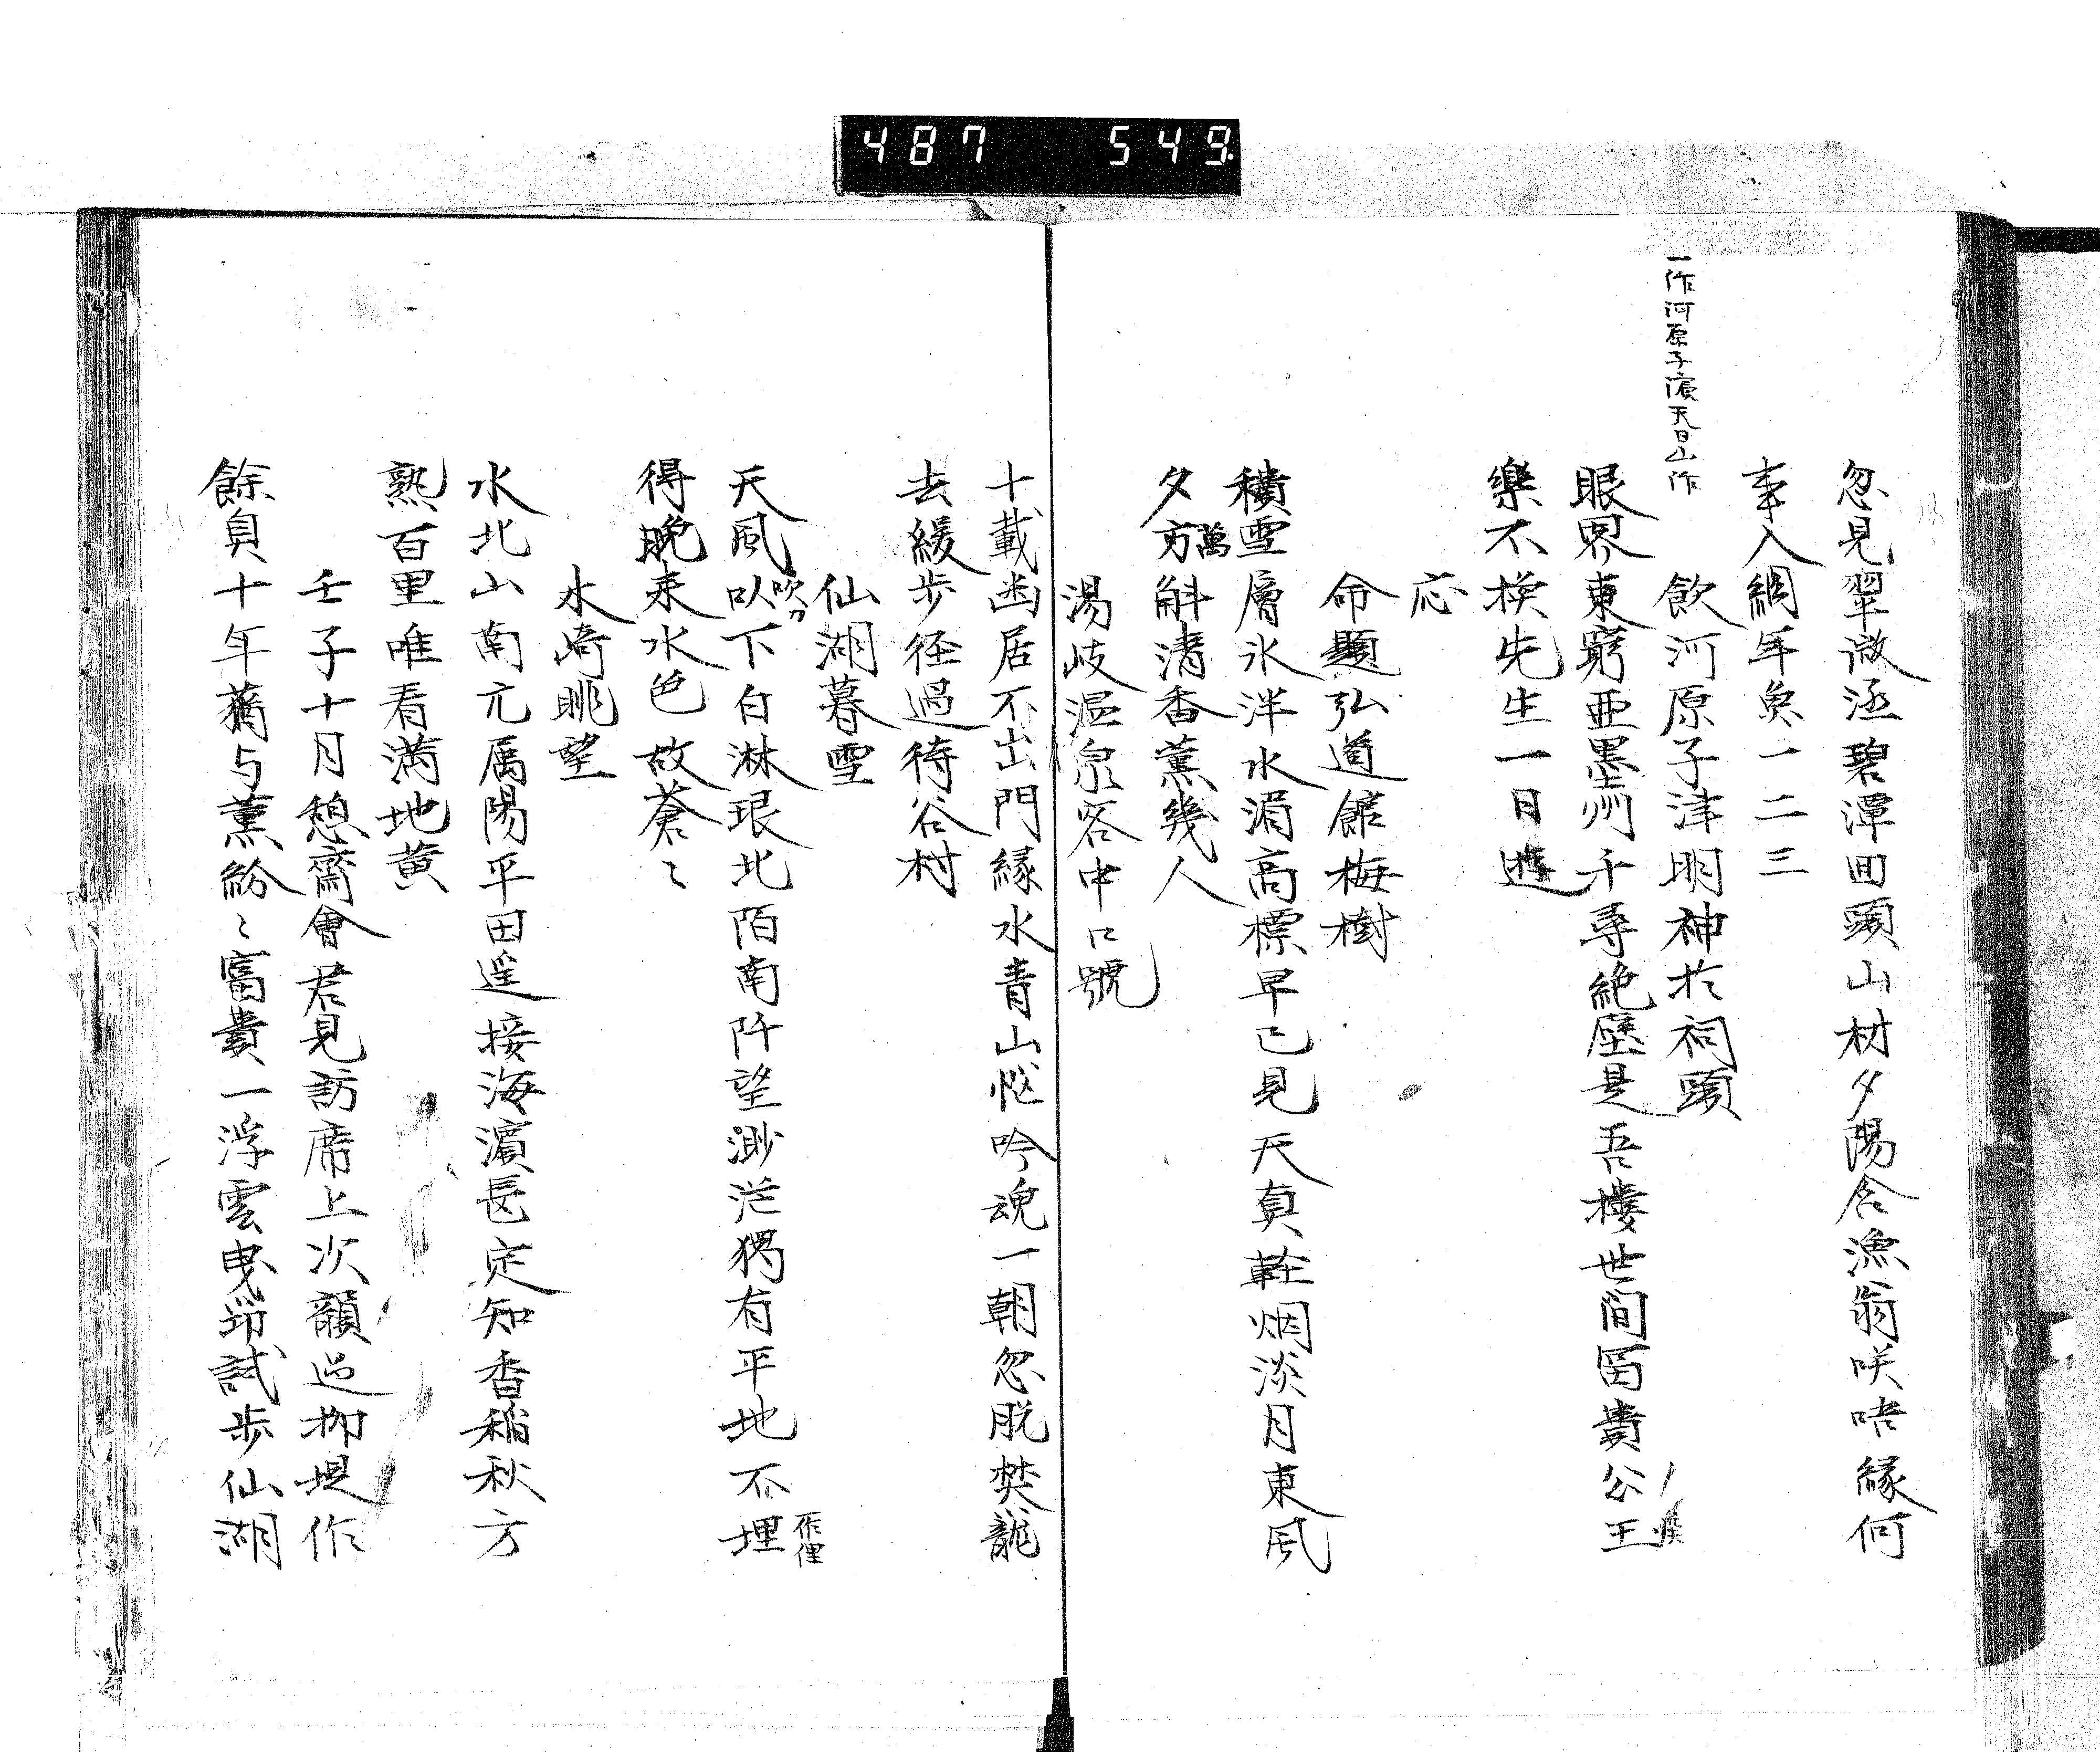 487 549
忽見翠微沍碧潭回頭山村夕陽含漁翁咲告縁何
事入網年魚一二三
一作河原子濱天日山作
飲河原子津明神於祠頭
眼界東窮亜墨州千尋絶壁是吾楼世間冨貴公王
侯
樂不換先生一日遊
応
命題弘道館梅樹
積雪層氷泮水湄高標早已見天真軽烟淡月東風
夕万斛清香薫幾人
萬
湯岐温泉客中口號
十載幽居不出門縁水青山悩吟魂一朝忽脱樊籠
去緩歩径過待谷村
仙湖暮雪
天風吹下白淋琅北陌南阡望渺茫獨有平地不埋
吹カ
作俚
得晩来水色故蒼〻
水崎眺望
水北山南亢属陽平田遥接海濱長定知香稲秋方
熟百里唯看満地黄
壬子十月憩齋會君見訪席上次韻邑柳堤作
餘負十年蕕与薫紛〻富貴一浮雲曳笻試歩仙湖